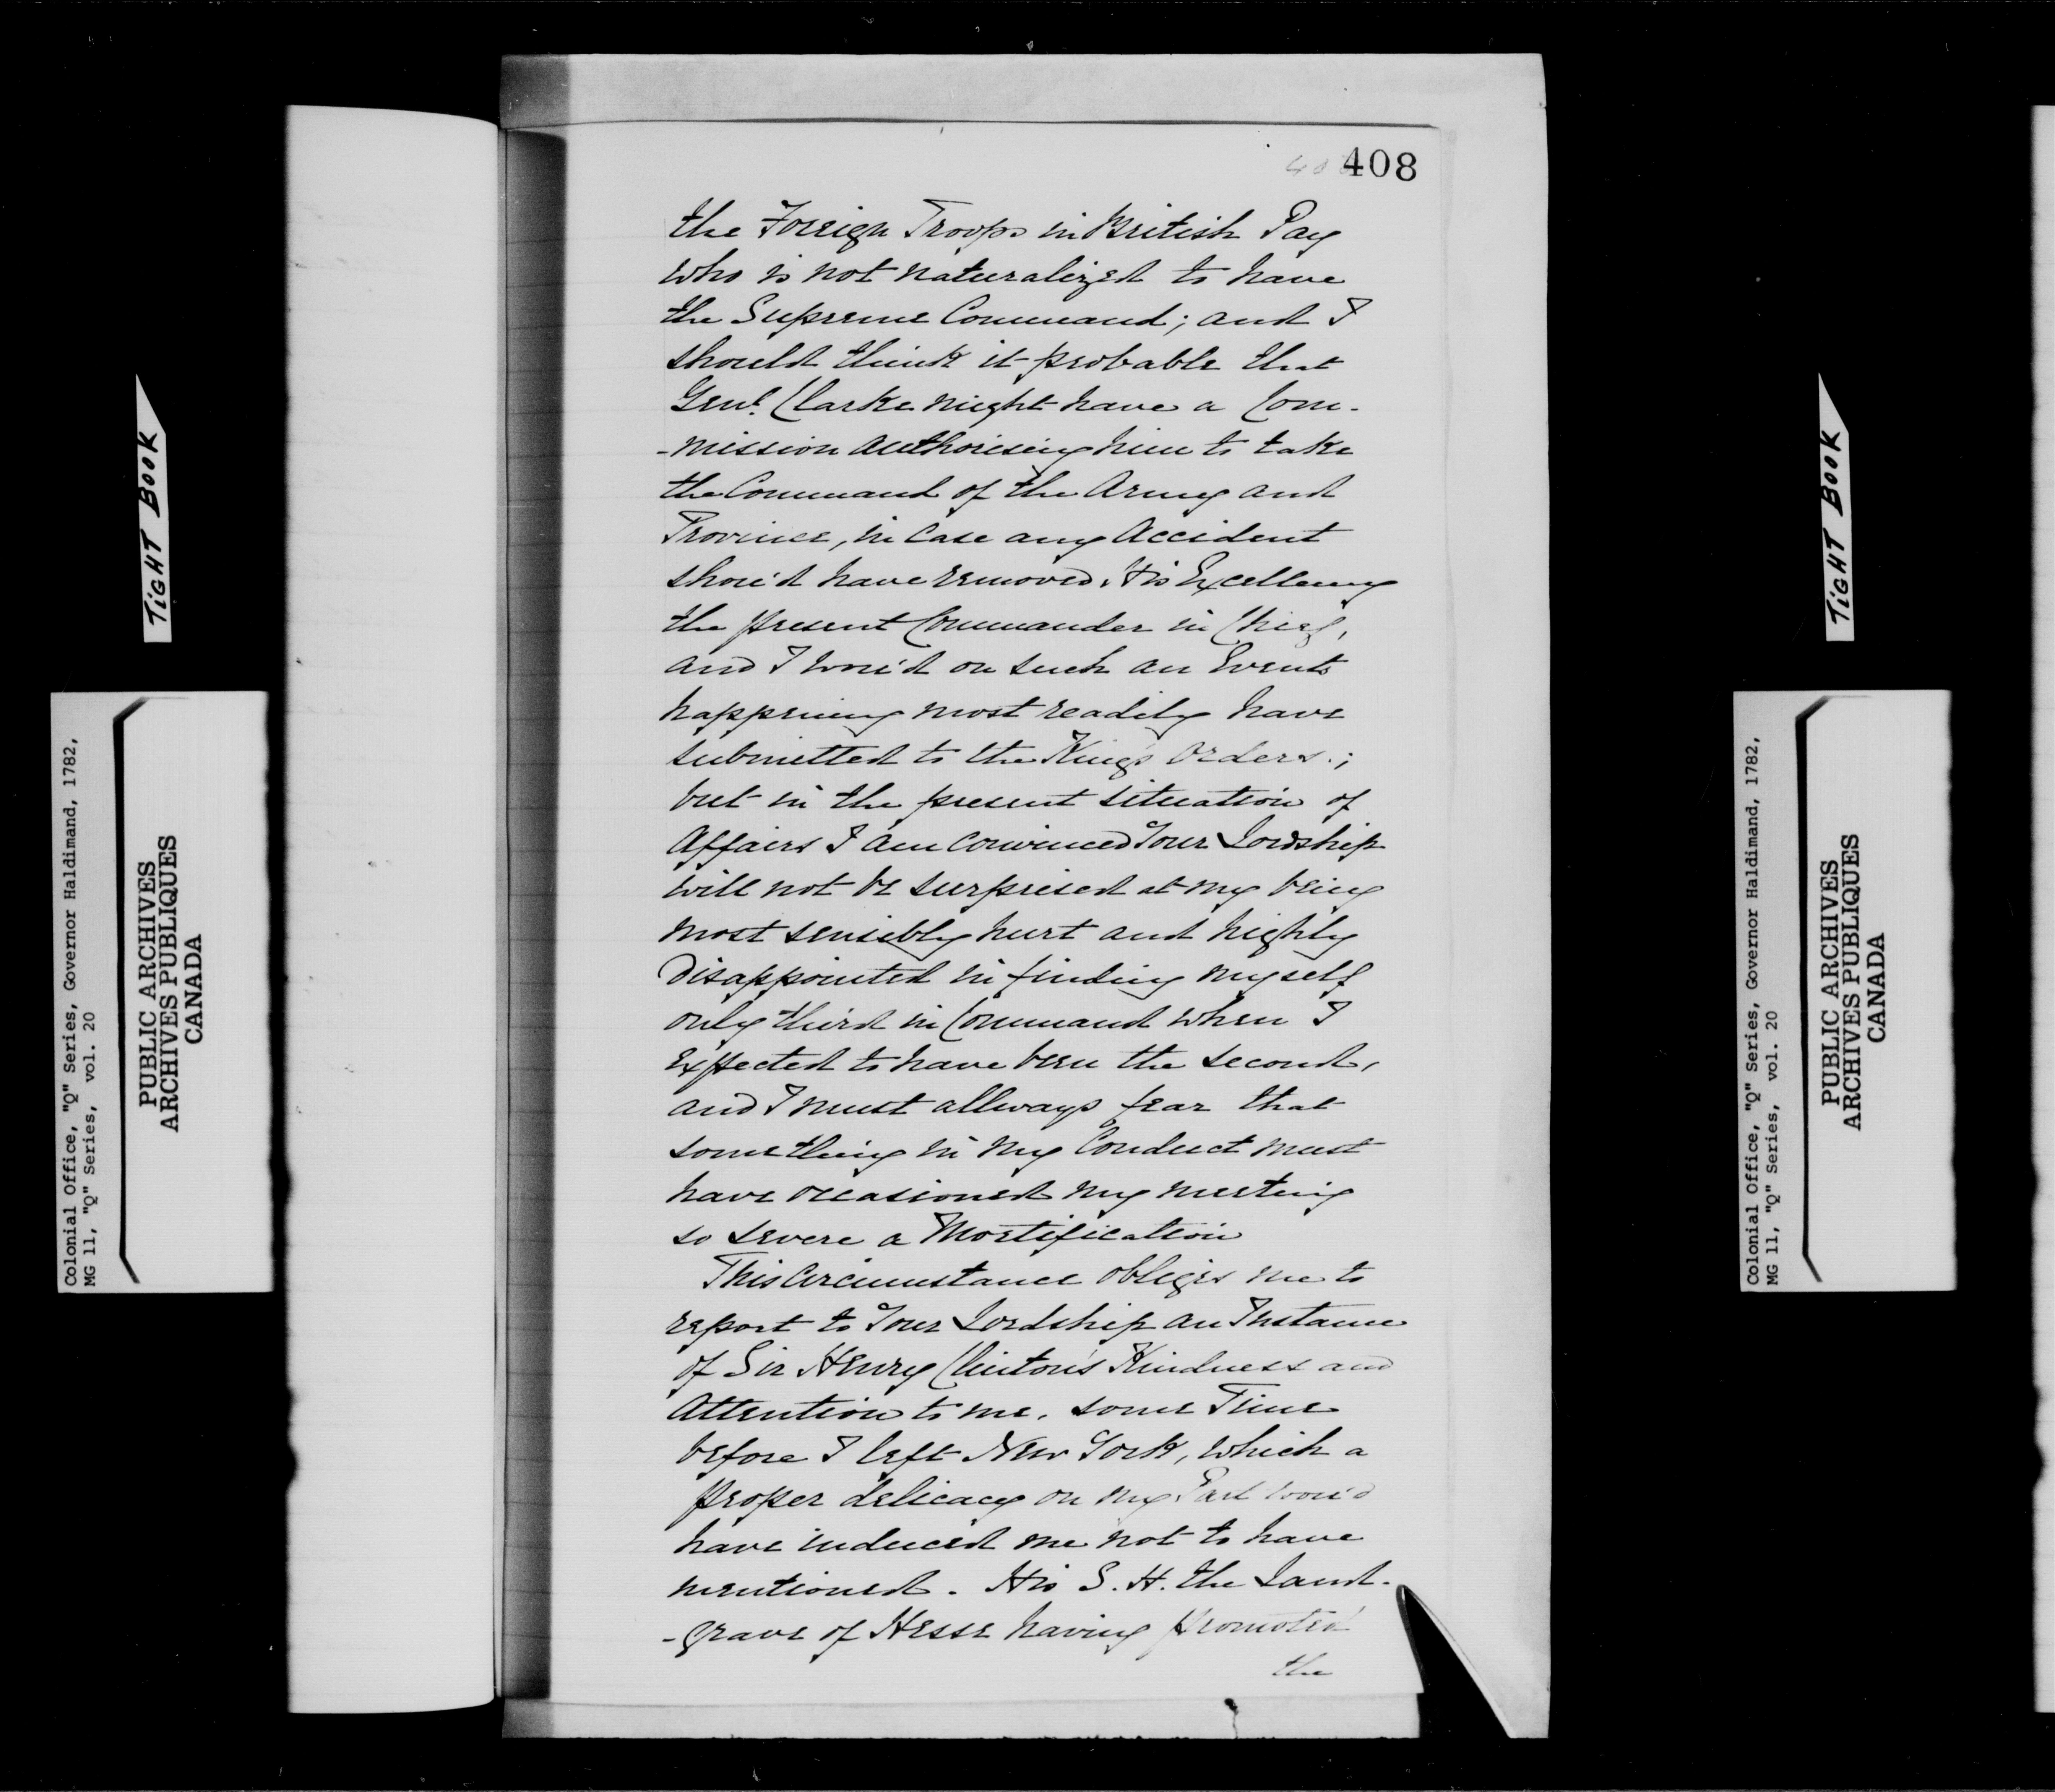 408
the Foreign Troops in British Pay
who is not naturalized to have
the Supreme Command; and I
should think it probable that
Genl. Clarke might have a Com-
-mission authorising him to take
the Command of the Army and
Province, in Case any Accident
shou'd have removed His Excellency
the present Commander in Chief,
and I wou'd on such an Event
happening most readily have
submitted to the King's Orders;
but in the present situation of
Affairs I am convinced Your Lordship
will not be surprised at my being
most sensibly hurt and highly
disappointed in finding myself
only third in Command when I
expected to have been the second,
and I must allways fear that
something in my Conduct must
have occasioned my meeting
so severe a Mortification
This Circumstance obliges me to
report to Your Lordship an Instance
of Sir Henry Clinton's Kindness and
Attention to me, some Time
before I left New York, which a
proper delicacy on my Part wou'd
have induced me not to have
mentioned. His S. H. the Land-
-grave of Hesse having promoted
the
TIGHT BOOK
Colonial Office, "Q" Series, Governor Haldimand, 1782,
MG 11, "Q" Series, vol. 20
PUBLIC ARCHIVES
ARCHIVES PUBLIQUES
CANADA
TIGHT BOOK
Colonial Office, "Q" Series, Governor Haldimand, 1782,
MG 11, "Q" Series, vol. 20
PUBLIC ARCHIVES
ARCHIVES PUBLIQUES
CANADA